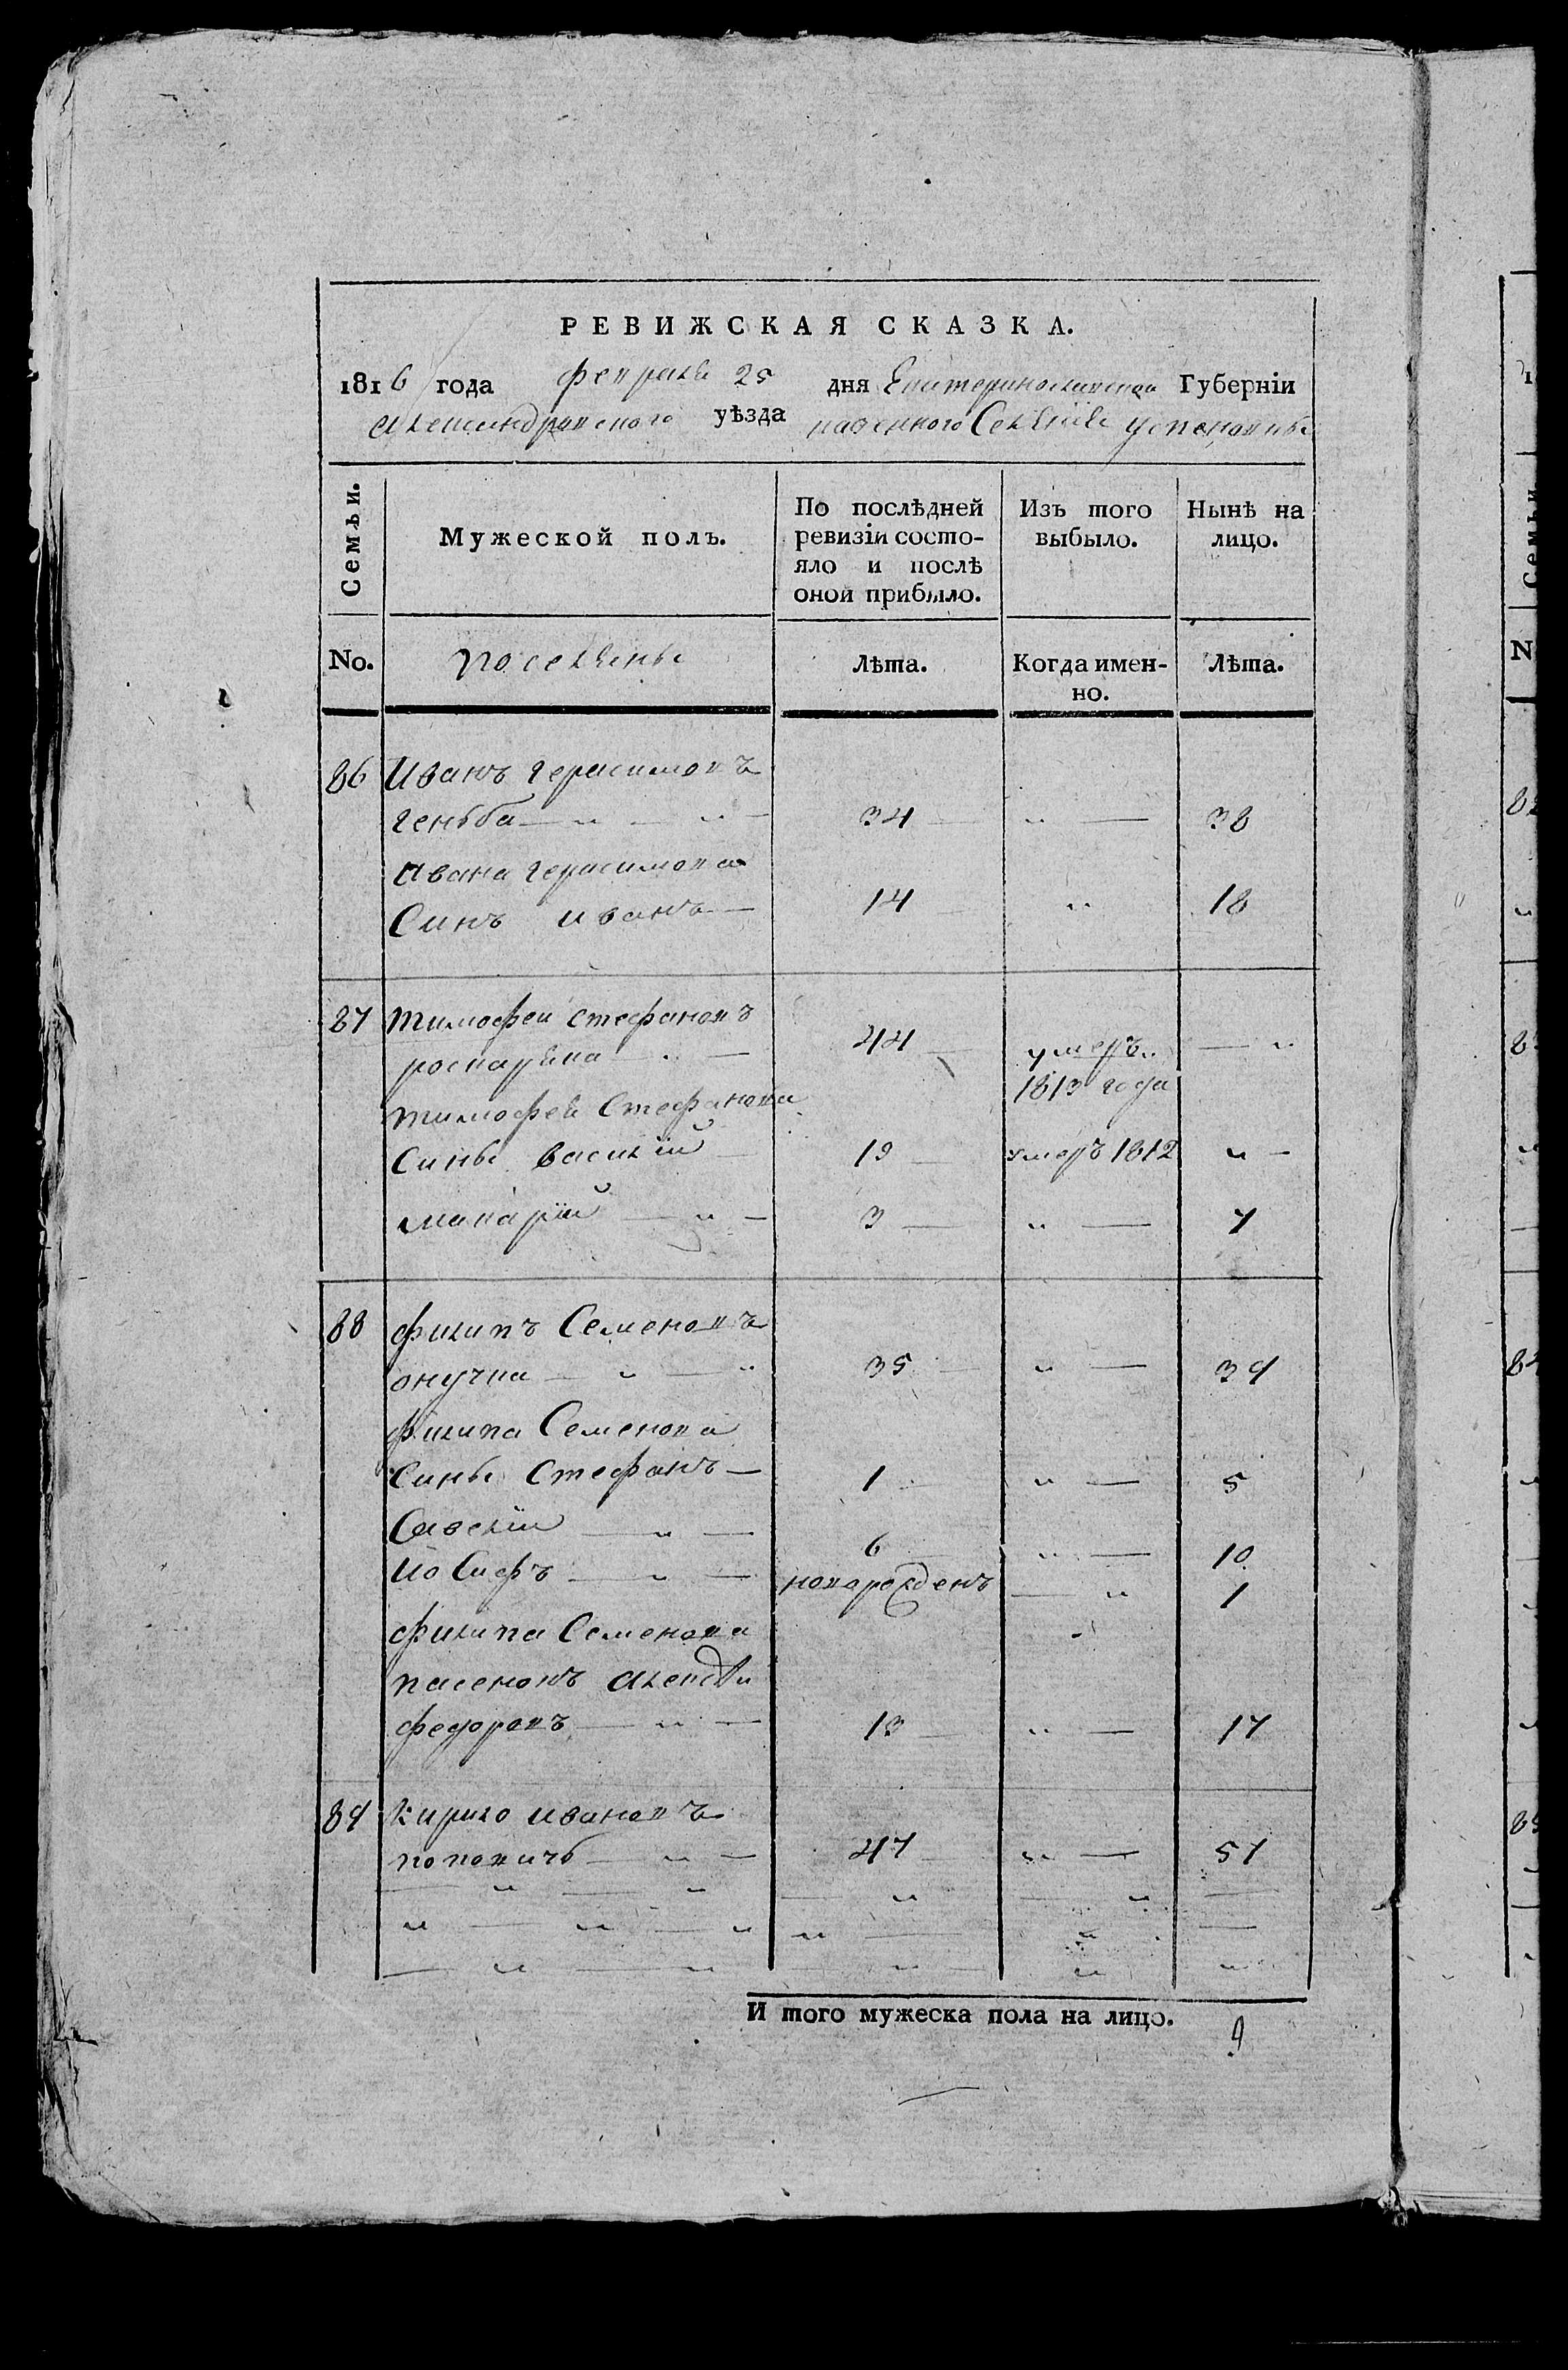 РЕВИЖСКАЯ СКАЗКА.
1816 года февраля 25 дня Екатеринославской Губерніи
александрийского уѣзда казенного Селѣнія успеновки
Семьи.
Мужеской полъ.
По послѣдней ревизіи состояло и послѣ оной прибыло.
Изъ того выбыло.
Нынѣ на лицо.
No. поселяне Лѣта. Когда именно. Лѣта.
86 Иванъ герасимовъ
геньба — „ — „ — 34 — „ — 38
Ивана герасимова
Синъ иванъ — 14 — „ 18
87 тимофеи стефановъ 44 — умеръ „ — „
— „ — 1813 года
тимофея Стефанова
Сины василій — 19 — умеръ 1812 „ —
макарій — „ — 3 — „ — 7
88 филипъ Семеновъ
онучка — „ — „ 35 — „ — 39
филипа Семенова
Сины Стефанъ — 1 — „ — 5
Савелій — „ — 6 — „ — 10
Иосифъ — „ — новорожденъ — „ 1
филипа Семенова
пасенокъ алексѣй
федоровъ — „ — 13 — „ — 17
89 кирило ивановъ
поповичъ — „ — 47 — „ — 51
— „ — „ — „ — „ —
„ — „ — „ „ — „ —
— „ — „ — „ „ „
И того мужеска пола на лицо. 9